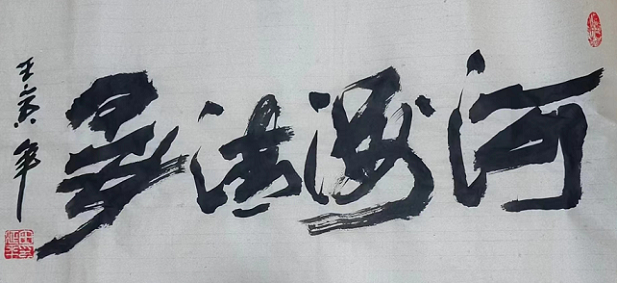 河海清晏
壬寅年